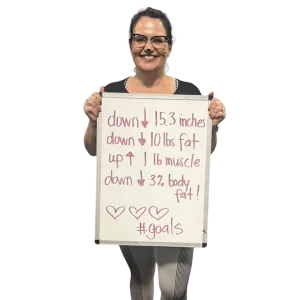 down ↓ 15.3 inches
down ↓ 10 lbs fat
up ↑ 1 lb muscle
down ↓ 3% body
fat!
♡ ♡ ♡
#goals